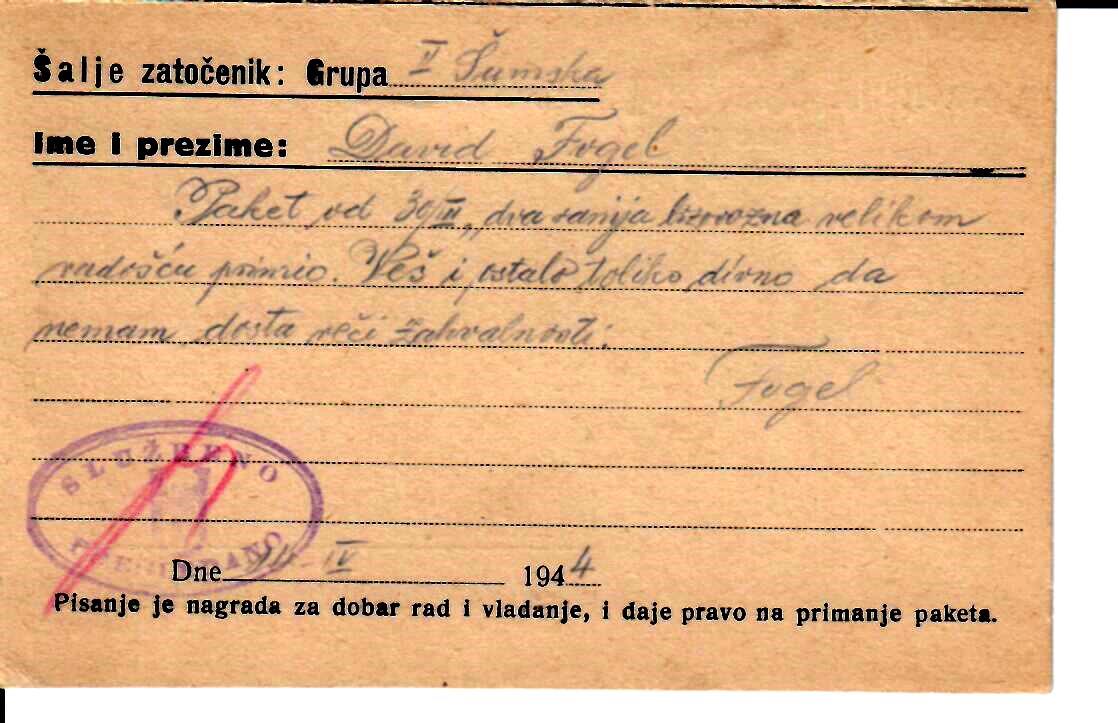 Šalje zatočenik: Grupa II Šumska
Ime i prezime: David Fogel
Paket od 30/III „ dva ranija velikom
radošću primio. Veš i ostalo toliko divno da
nemam dosta reči zahvalnosti.
Fogel
SLUŽBENO
Dne IV 1944
Pisanje je nagrada za dobar rad i vladanje, i daje pravo na primanje paketa.